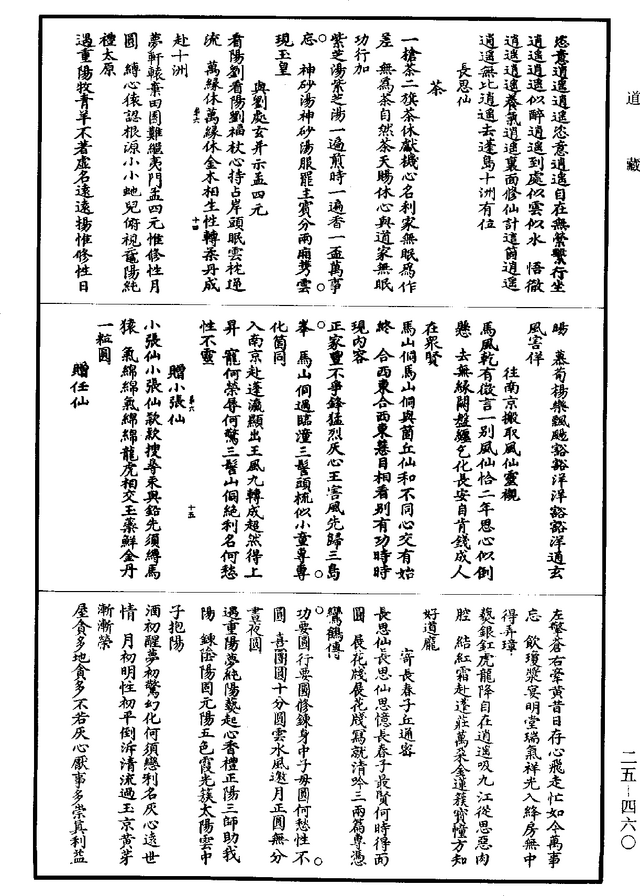 道藏
恣意逍遙逍遙恣意逍遙自在無縈繫行坐
逍遙逍遙似醉逍遙到處似雲似水　悟徹
逍遙逍遙養氣逍遙裏面修仙計這箇逍遙
逍遙無比逍遙去蓬島十洲有位
長思仙
茶
一槍茶二旗茶休獻機心名利家無眠爲作
差　無爲茶自然茶天賜休心與道家無眠
功行加
紫芝湯紫芝湯一遍煎時一遍香一盃萬事
忘　神砂湯神砂湯服罷主賓分兩廂攜雲
現玉皇
與劉處玄并示孟四元
看陽劉看陽劉福杖心持占岸頭眠雲枕逼
流　萬緣休萬緣休金木相生性轉柔丹成
卷六　十四
赴十洲
夢軒轅棄田園難繼夷門孟四元惟修性月
圓　縛心猿認根源小小虵兒俯視黿陽純
禮太原
遇重陽牧青羊不著虛名遠遠揚惟修性日
暘　慕荀楊樂颻颺豁豁洋洋豁豁洋通玄
風害佯
往南京搬取風仙靈櫬
馬風乾有微言一別風仙恰二年思心似倒
懸　去無緣闕盤纏乞化長安自肯錢成人
在衆賢
馬山侗馬山侗與箇丘仙和不同心交有始
終　合西東合西東慧目相看別有功時時
現內容
正家豐不爭鋒猛烈灰心王害風先歸三島
峯　馬山侗過臨潼三髻頭梳似小童專專
化箇同
入南京赴蓬瀛顯出王風九轉成超然得上
昇　寵何榮辱何驚三髻山侗絕利名何愁
性不靈
贈小張仙
卷六　十五
小張仙小張仙款款搜尋汞與鉛先須縛馬
猿　氣綿綿氣綿綿龍虎相交玉蘂鮮金丹
一粒圓
贈任仙
左擎蒼右牽黃昔日存心飛走忙如今萬事
忘　飲瓊漿宴明堂瑞氣祥光入絳房無中
得弄璋
爇銀釭虎龍降自在逍遙吸九江從思惡肉
腔　結紅霜赴蓬莊萬朵金蓮簇寶幢方知
好道龐
寄長春子丘通密
長思仙長思仙思憶長春子最賢何時得面
圓　展花牋展花牋寫就清吟三兩篇專憑
鸞鶴傳
功要圓行要圓修鍊身中子母圓何愁性不
圓　喜團圓十分圓雲水風邀月正圓無分
晝夜圓
遇重陽夢純陽爇起心香禮正陽三師助我
陽　鍊陰陽固元陽五色霞光簇太陽雲中
子抱陽
酒初醒夢初驚幻化何須戀利名灰心遠世
情　月初明性初平倒泝清流過玉京黃芽
漸漸榮
屋貪多地貪多不若灰心厭事多崇真利益
二五－四六〇